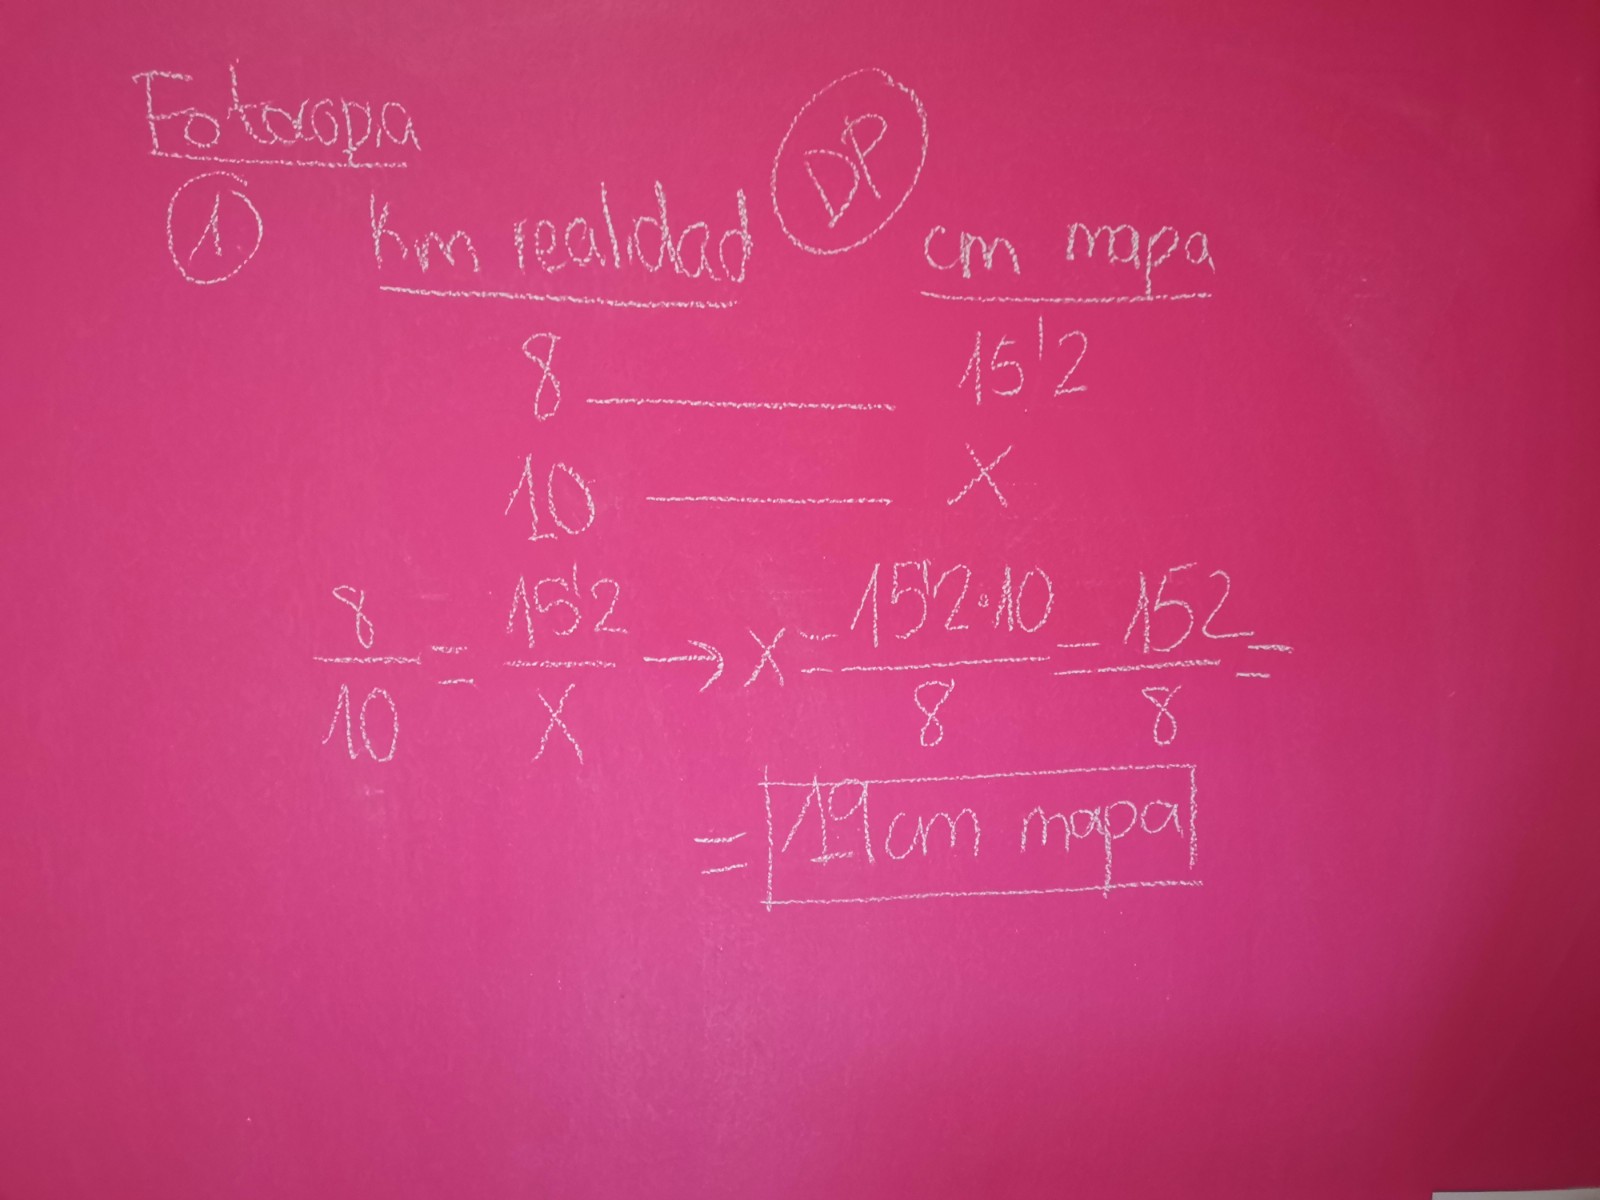 Fotocopia
1 Km realidad DP cm mapa
8 ——— 15'2
10 ——— X
8/10 = 15'2/X → X = 15'2·10/8 = 152/8 =
= 19 cm mapa